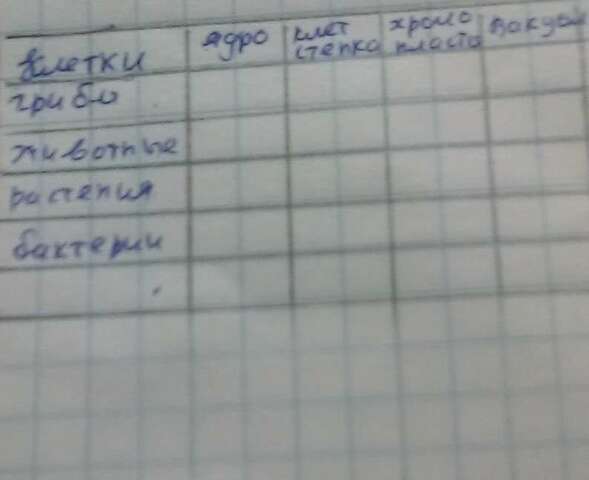 клетки ядро клет стенка хромо пласты вакуол
грибы
животные
растения
бактерии